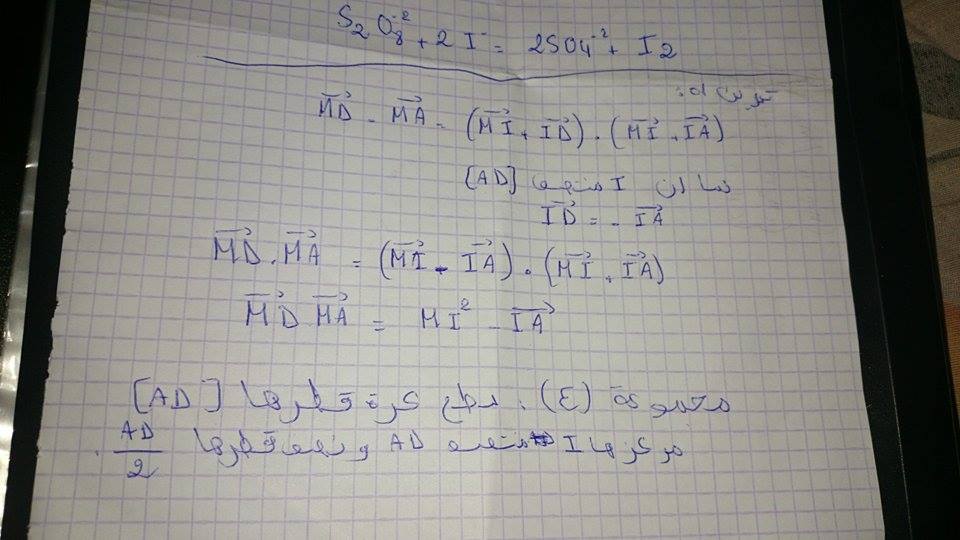 S₂O₈⁻² + 2 I⁻ = 2SO4⁻² + I2
MD⃗ - MA⃗ = (MI⃗ + ID⃗) . (MI⃗ + IA⃗)
بما ان I منتصف [AD]
ID⃗ = - IA⃗
MD⃗ . MA⃗ = (MI⃗ - IA⃗) . (MI⃗ + IA⃗)
MD⃗ MA⃗ = MI² - IA⃗
مجموعة (٤) . سطح كرة قطرها [AD]
مركزها I منتصف AD ونصف قطرها AD/2 .